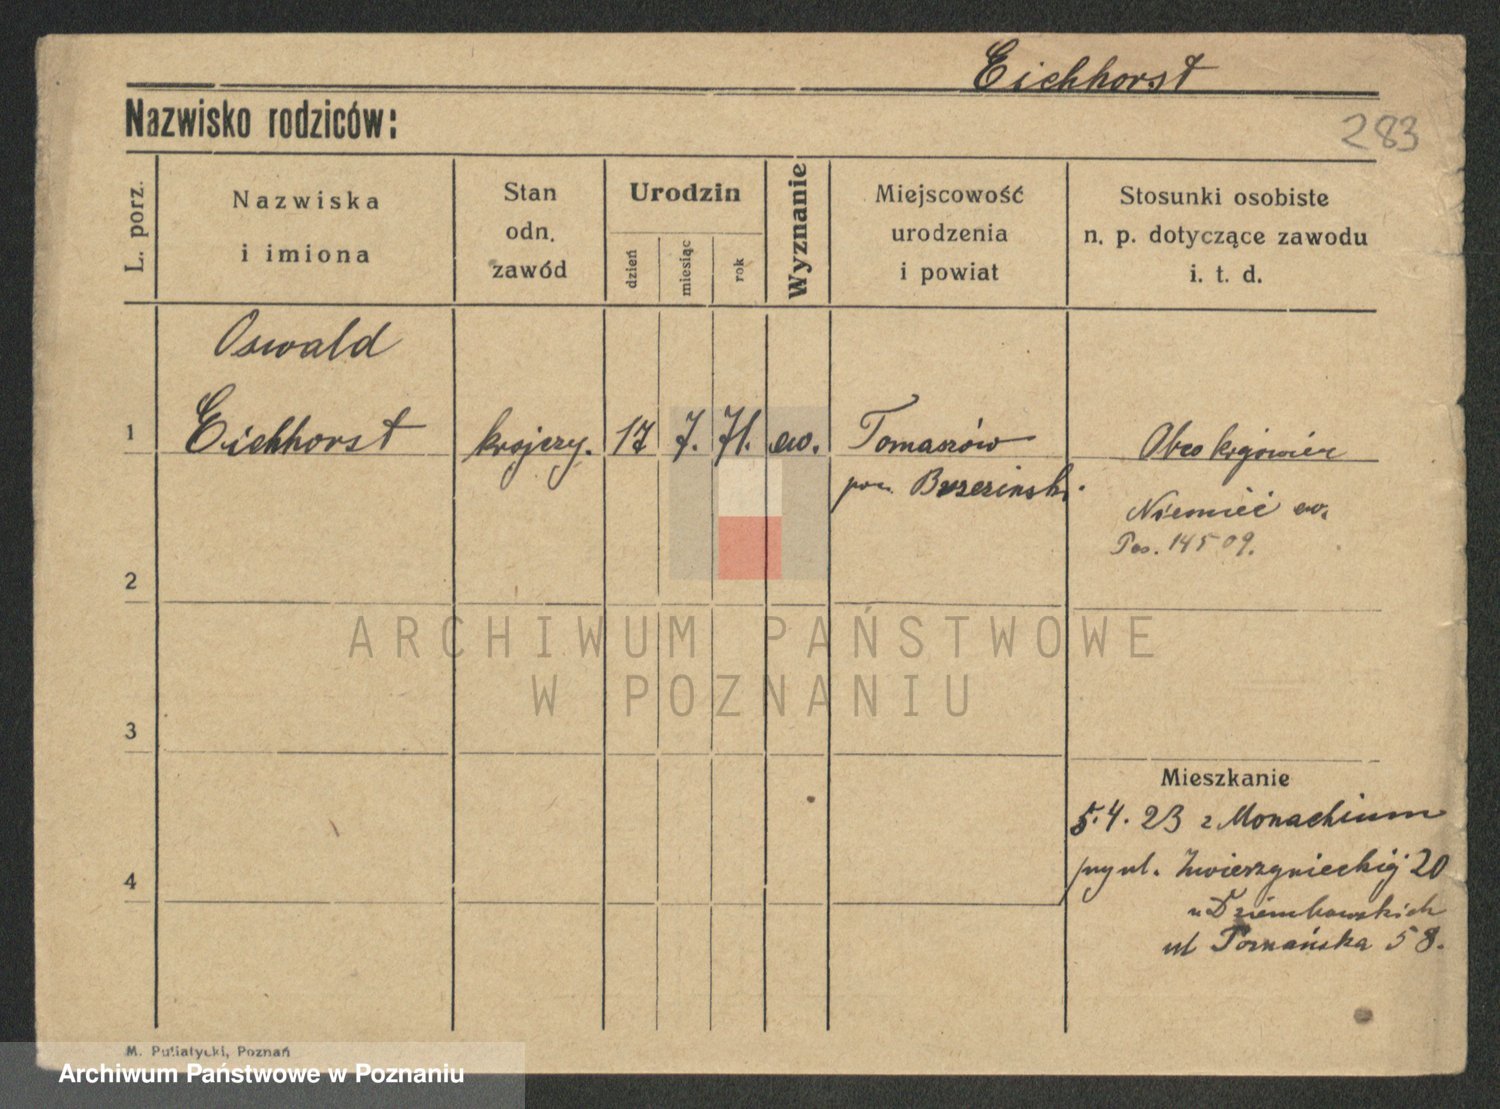 Eichhorst
Nazwisko rodziców:
283
L. porz.
Nazwiska
i imiona
Stan
odn.
zawód
Urodzin
dzień
miesiąc
rok
Wyznanie
Miejscowość
urodzenia
i powiat
Stosunki osobiste
n. p. dotyczące zawodu
i. t. d.
Oswald
1 Eichhorst krojczy. 17 7. 71. ew. Tomaszów
pow. Brzeziński
Niemieć ew.
Pas. 14509.
2
ARCHIWUM PAŃSTWOWE
W POZNANIU
3
Mieszkanie
5.4.23 z Monachium
przy ul. Zwierzynieckiej 20
u Dziembowskich
4
ul Poznańska 58.
M. Putiatycki, Poznań
Archiwum Państwowe w Poznaniu